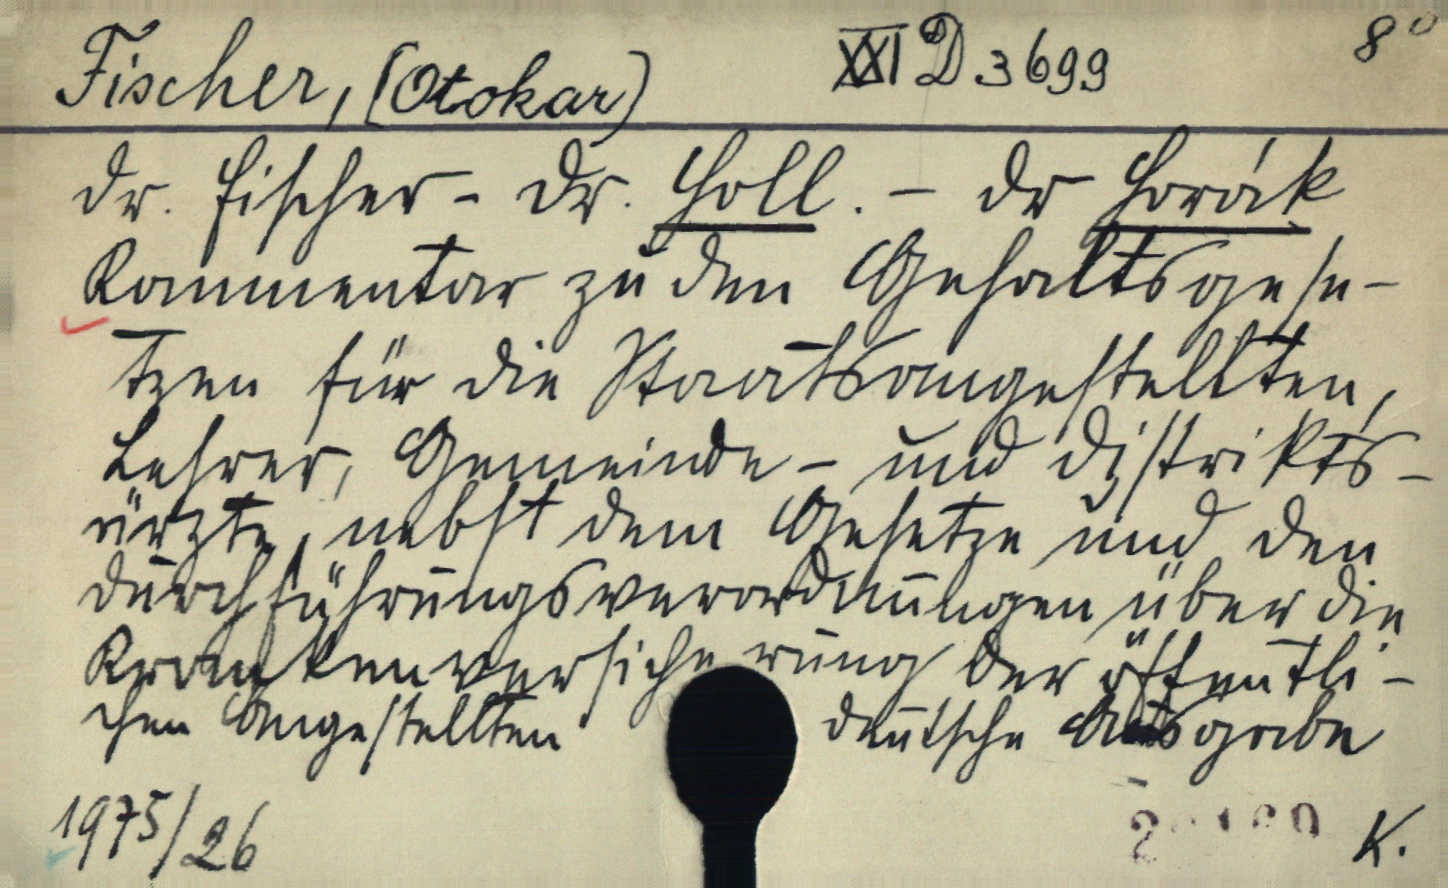 Fischer, (Otokar) XXI D 3699 8°
Dr. Fischer - Dr. Holl. - Dr Horák
Kommentar zu den Gehaltsgese-
tzen für die Staatsangestellten,
Lehrer, Gemeinde- und Distrikts-
ärzte, nebst dem Gesetze und den
Durchführungsverordnungen über die
Krankenversicherung der öffentli-
chen Angestellten Deutsche Ausgabe
1975/26 K.